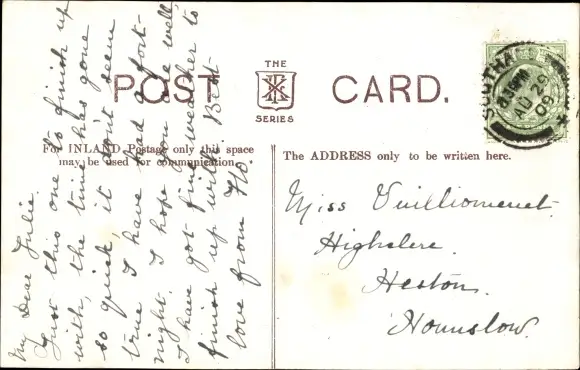 POST CARD.
THE
SERIES
For INLAND Postage only this space
may be used for communication.
The ADDRESS only to be written here.
My Dear Julie.
Just this one to finish up
with, the time has gone
so quick, it don't seem
true I have had a fort-
night. I hope you are well,
I have got fine weather to
finish up with. Best
love from Flo
Miss Vuilliomenet.
Highclere.
Heston.
Hounslow.
8.30PM
AU 29
09